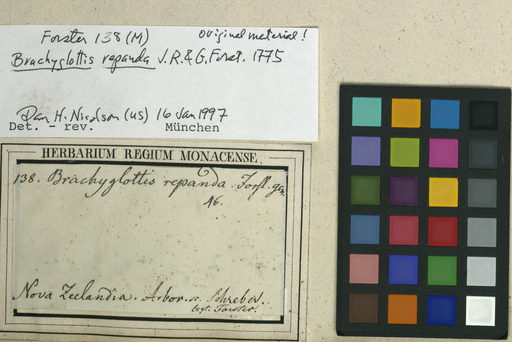 Forster 138 (M) Original material!
Brachyglottis repanda J.R. & G. Forst. 1775
Dan H. Nicolson (US) 16 Jan 1997
Det. - rev. München
HERBARIUM REGIUM MONACENSE.
138. Brachyglottis repanda. Forst. gen.
46.
Nova Zeelandia. Arbor. Schreber.
legt. Forster.